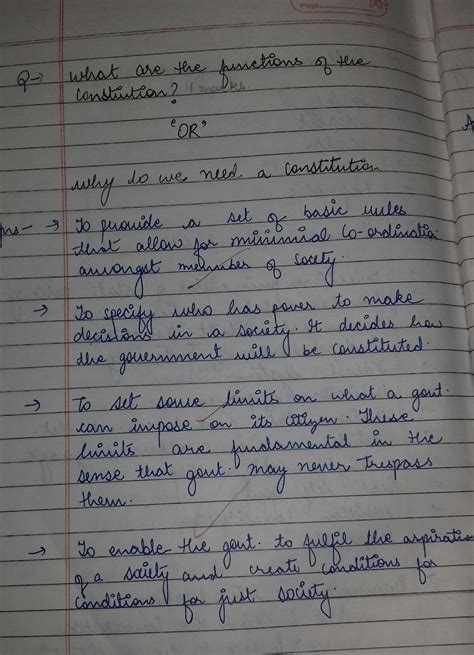 Page
Q→ What are the functions of the
constiution? 4 marks
"OR"
why do we need a constitution
Ans- → To provide a set of basic rules
that allow for minimial Co-ordinatio
amongst member of socety.
→ To specify who has power to make
decisions in a society. It decides how
the government will be constituted.
→ To set some limits on what a govt.
can impose on its citizen. These
limits are fundamental in the
sense that govt. may never trespass
them.
→ To enable the govt. to fulfil the aspiration
of a society and create conditions for
conditions for just society.